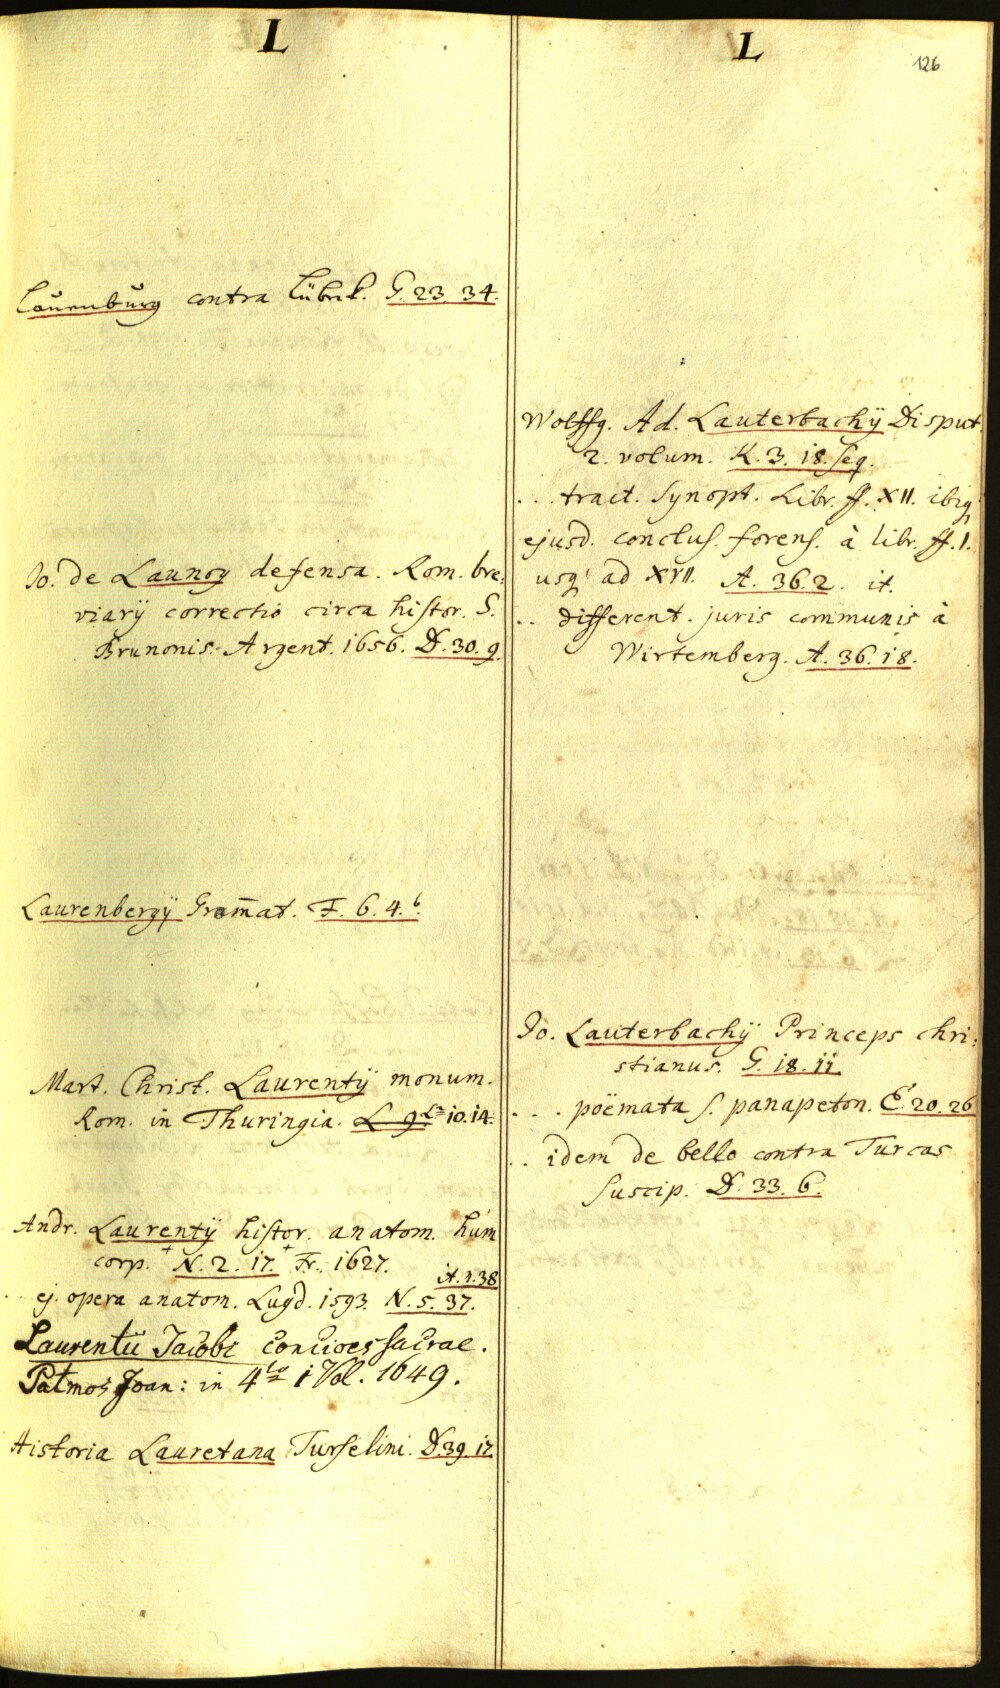 L
Lauenburg contra Lübek. G. 23. 34.
Jo. de Launoy defensa. Rom. bre:
viarÿ correctio circa histor. S.
Brunonis. Argent. 1656. D. 30. 9.
Laurenbergÿ Gram̄at. F. 6. 4. b.
Mart. Christ. Laurentÿ monum.
Rom. in Thuringia. L 9 10. 14.
Andr. Laurentÿ histor. anatom. hum
corp. + N. 2. 17. + Fr. 1627.
A. n. 38
.. ej. opera anatom. Lugd. 1593. N. 5. 37.
Laurentii Jacobi concioes sacrae.
Patmos Joan: in 4to 1 Vol. 1649.
Historia Lauretana Turselini. D. 39. 17.
L
126
Wolffg. Ad. Lauterbachÿ Disput.
2. volum. K. 3. 18. seq.
... tract. Synopt. Libr. ff. XII. ibiq
ejusd. conclus. forens. à libr. ff. 1.
usq' ad XVII. A. 36. 2. it.
.. different. juris communis à
Wirtemberg. A. 36. 18.
Jo. Lauterbachÿ Princeps chri:
stianus. G. 18. 11.
... poëmata s. panapeton. E. 20. 26
.. idem de bello contra Turcas
suscip. D. 33. 6.